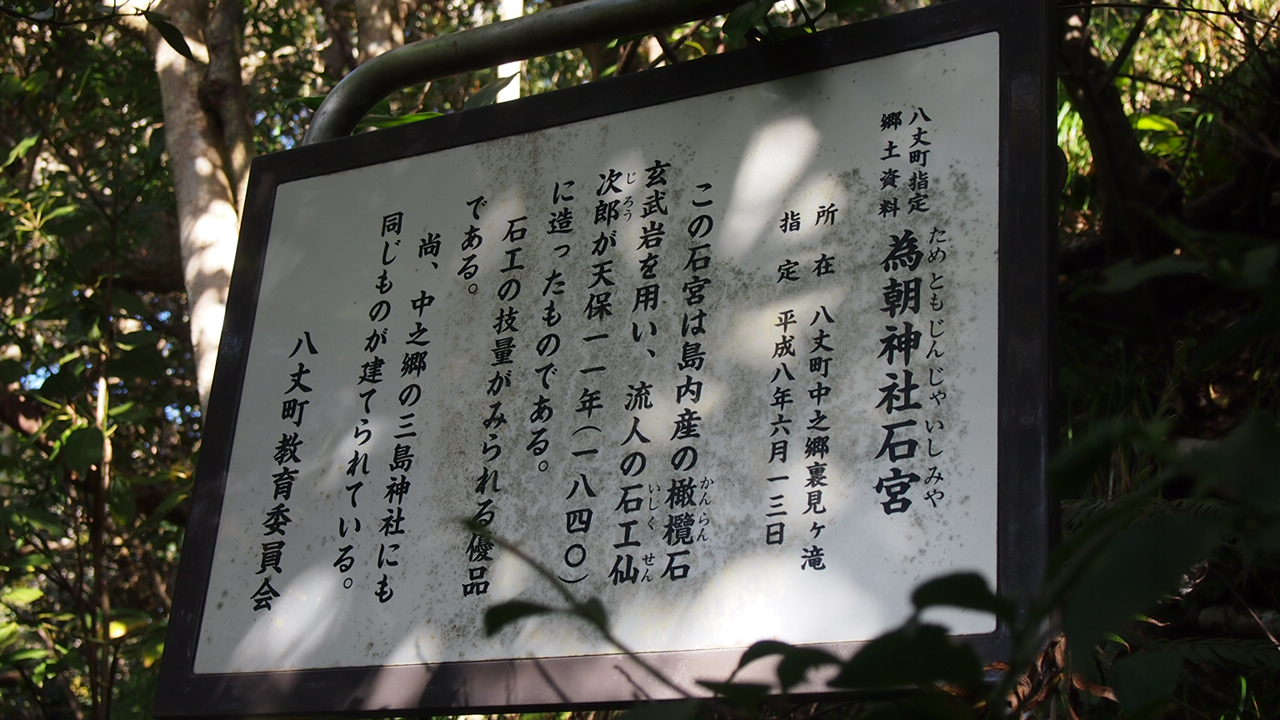 八丈町指定
郷土資料
為朝神社石宮
ためともじんじゃいしみや
所在 八丈町中之郷裏見ヶ滝
指定 平成八年六月一三日
この石宮は島内産の橄欖石
かんらん
玄武岩を用い、流人の石工仙
いしく せん
次郎が天保一一年(一八四〇)
じろう
に造ったものである。
石工の技量がみられる優品
である。
尚、中之郷の三島神社にも
同じものが建てられている。
八丈町教育委員会